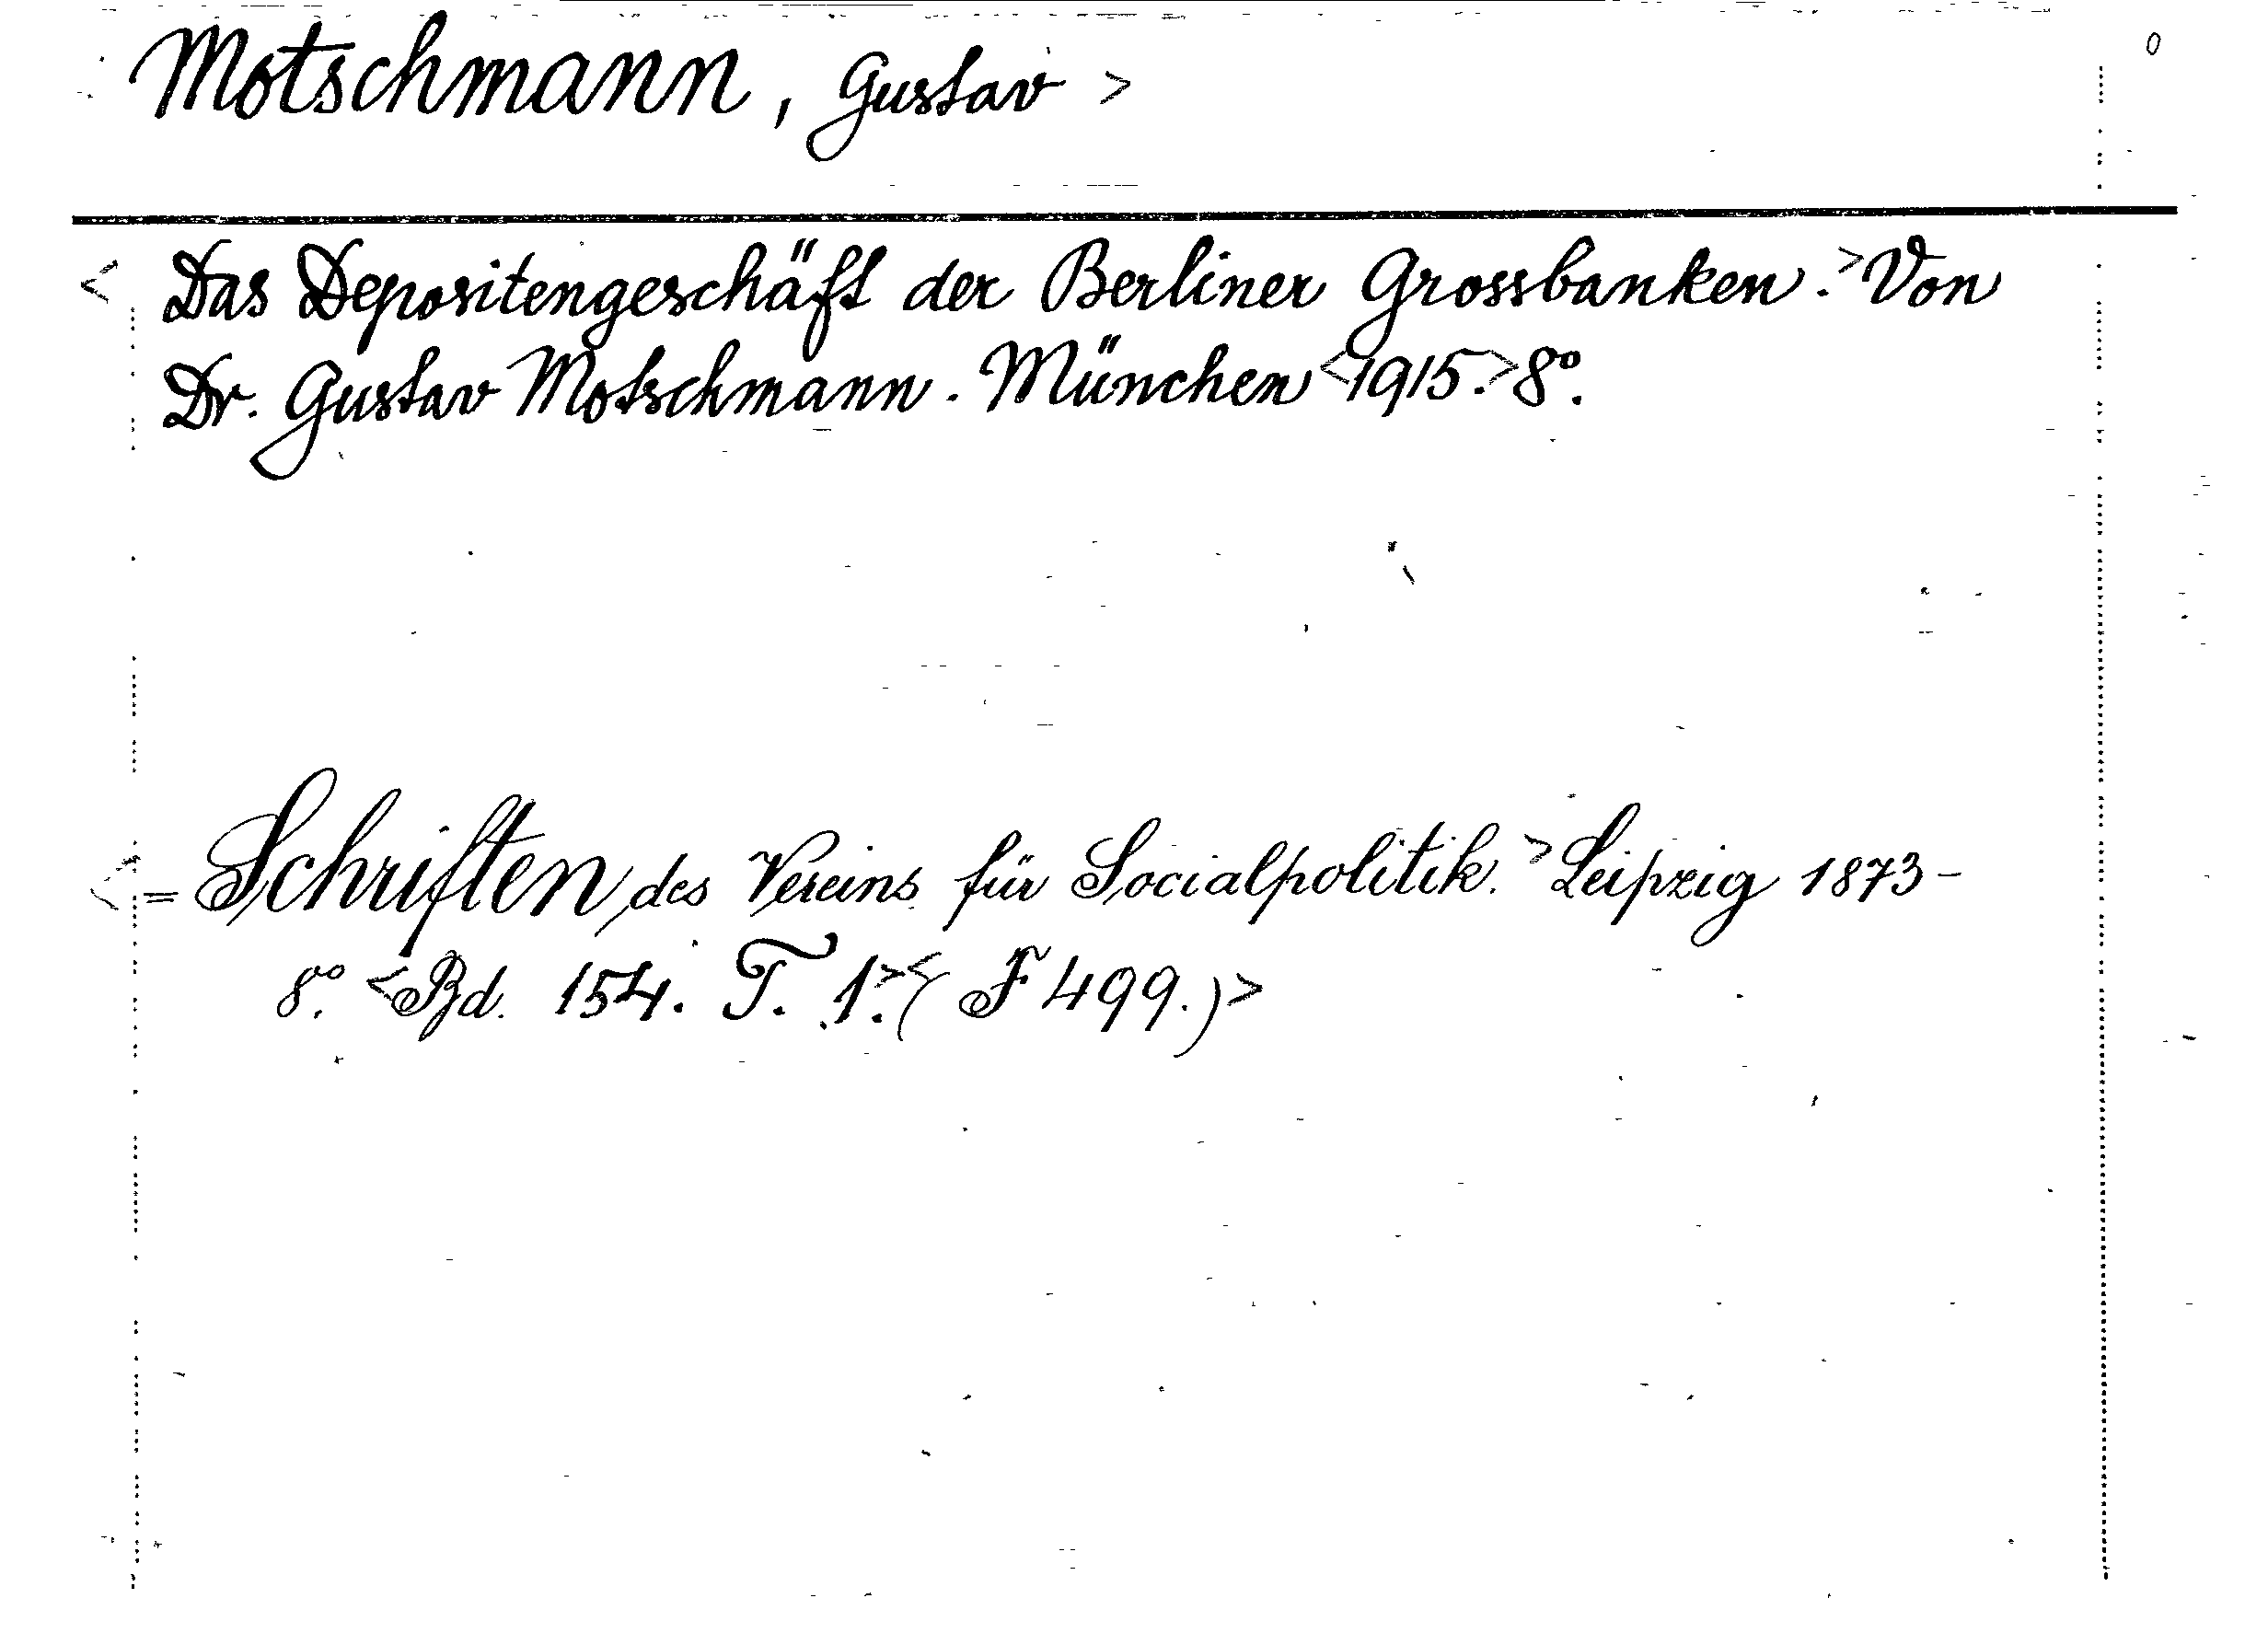 Motschmann, Gustav >
0
< Das Depositengeschäft der Berliner Grossbanken.> Von
Dr. Gustav Motschmann. München <1915.> 8°.
< = Schriften des Vereins für Socialpolitik.> Leipzig 1873-
8°. <Bd. 154. T. 1.> <( F 499.)>